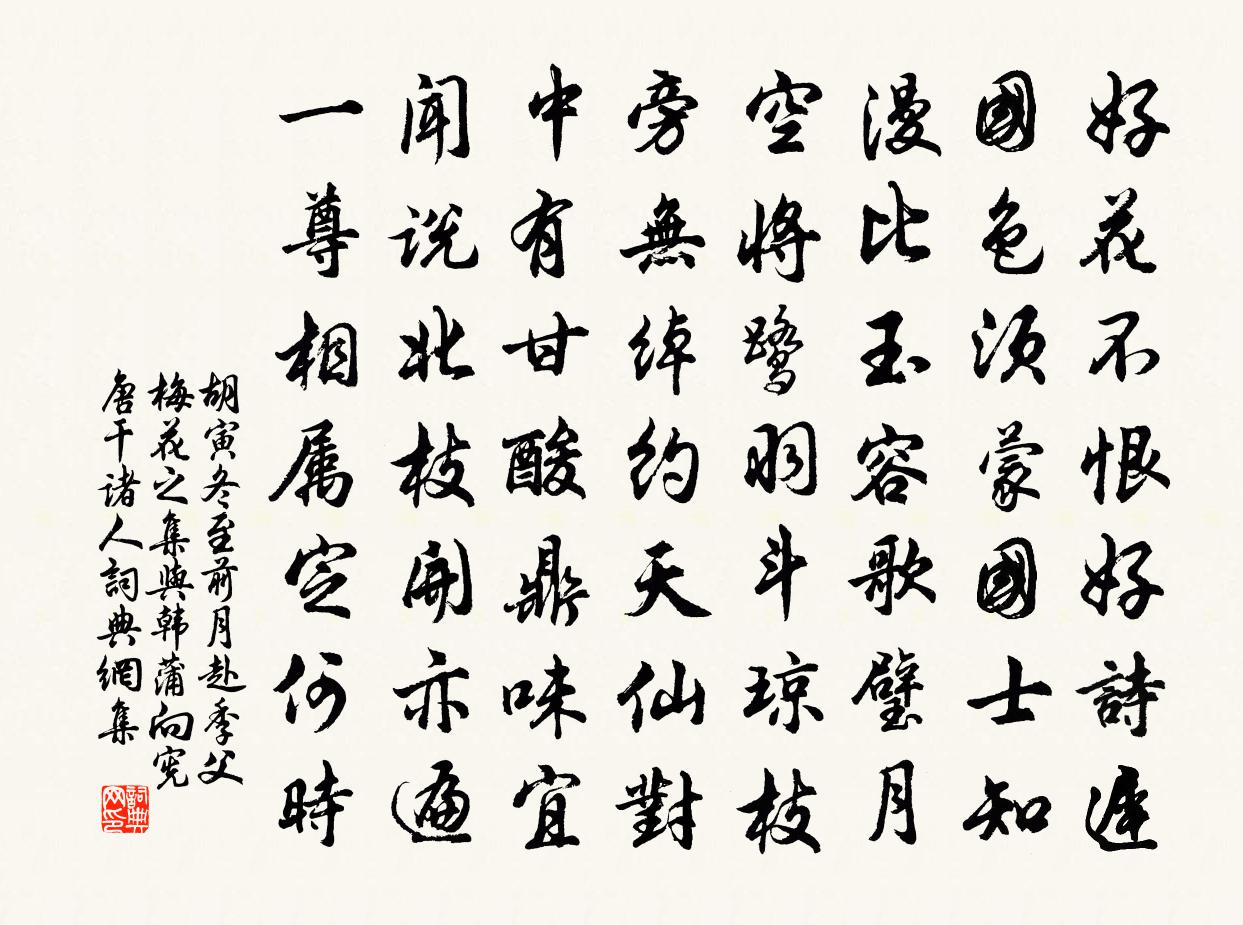 好花不恨好詩遲
國色須蒙國士知
漫比玉容歌璧月
空將鷺羽斗琼枝
旁無綽約天仙對
中有甘酸鼎味宜
聞说北枝開亦遍
一尊相属定何時
胡寅冬至前月赴季父
梅花之集與韩蒲向憲
唐干诸人詞典網集
詞典
网印